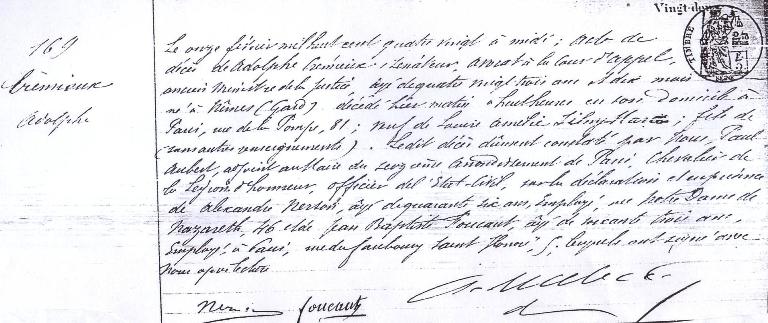 Vingt-deux
TIMBRE
169
Crémieux
Adolphe
Le onze février mil huit cent quatre vingt à midi ; acte de
décès de Adolphe Crémieux, Sénateur, avocat à la Cour d'appel,
ancien Ministre de la Justice âgé de quatre vingt trois ans & dix mois
né à Nîmes (Gard) décédé hier matin à huit heures en son domicile à
Paris, rue de la Pompe, 81 ; veuf de Louise Amélie ; fils de
(sans autres renseignements). Ledit décès dûment constaté par Nous, Paul
Aubert, adjoint au Maire du seizième arrondissement de Paris, Chevalier de
la Légion d'honneur, officier de l'Etat-Civil, sur la déclaration et en présence
de Alexandre Nerson, âgé de quarante six ans, Employé, rue Notre Dame de
Nazareth, 46 et de Jean Baptiste Foucaut, âgé de soixante trois ans,
Employé à Paris, rue du faubourg Saint Honoré, 5, lesquels ont signé avec
Nous après lecture
Foucaut